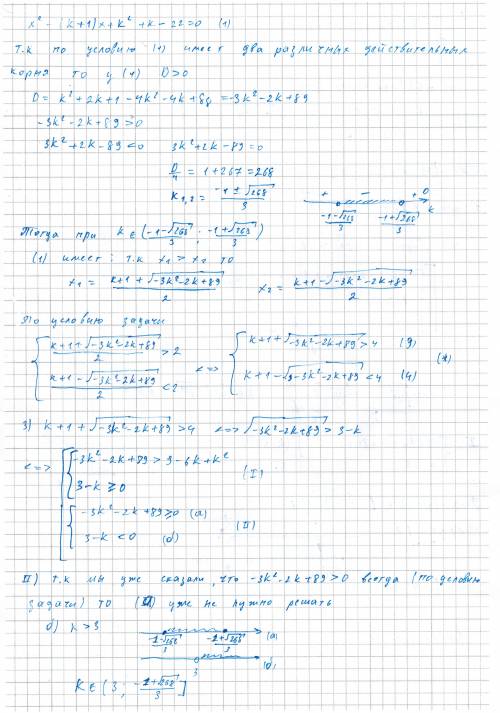 x² - (k+1)x + k² + k - 22 = 0 (1)
Т.к по условию (1) имеет два различных действительных
корня то у (1) D>0
D = k² + 2k + 1 - 4k² - 4k + 88 = -3k² - 2k + 89
-3k² - 2k + 89 > 0
3k² + 2k - 89 < 0 3k² + 2k - 89 = 0
D/4 = 1 + 267 = 268
k₁,₂ = (-1 ± √268)/3
+ - + k
(-1-√268)/3 (-1+√268)/3
Тогда при k ∈ ((-1-√268)/3 ; (-1+√268)/3)
(1) имеет: т.к x₁ > x₂ то
x₁ = (k+1+√(-3k²-2k+89))/2 x₂ = (k+1-√(-3k²-2k+89))/2
По условию задачи
{ (k+1+√(-3k²-2k+89))/2 > 2 <=> { k+1+√(-3k²-2k+89) > 4 (3)
{ (k+1-√(-3k²-2k+89))/2 < 2 { k+1-√(-3k²-2k+89) < 4 (4) (*)
3) k+1+√(-3k²-2k+89) > 4 <=> √(-3k²-2k+89) > 3-k
<=> [ { -3k²-2k+89 > 9-6k+k²
{ 3-k ≥ 0 (I)
{ -3k²-2k+89 ≥ 0 (а)
{ 3-k < 0 (б) (II)
II) Т.к мы уже сказали, что -3k²-2k+89>0 всегда (по условию
задачи) то (а) уже не нужно решать
б) k > 3
(-1-√268)/3 (-1+√268)/3 (а)
3 (б)
k ∈ (3 ; (-1+√268)/3]